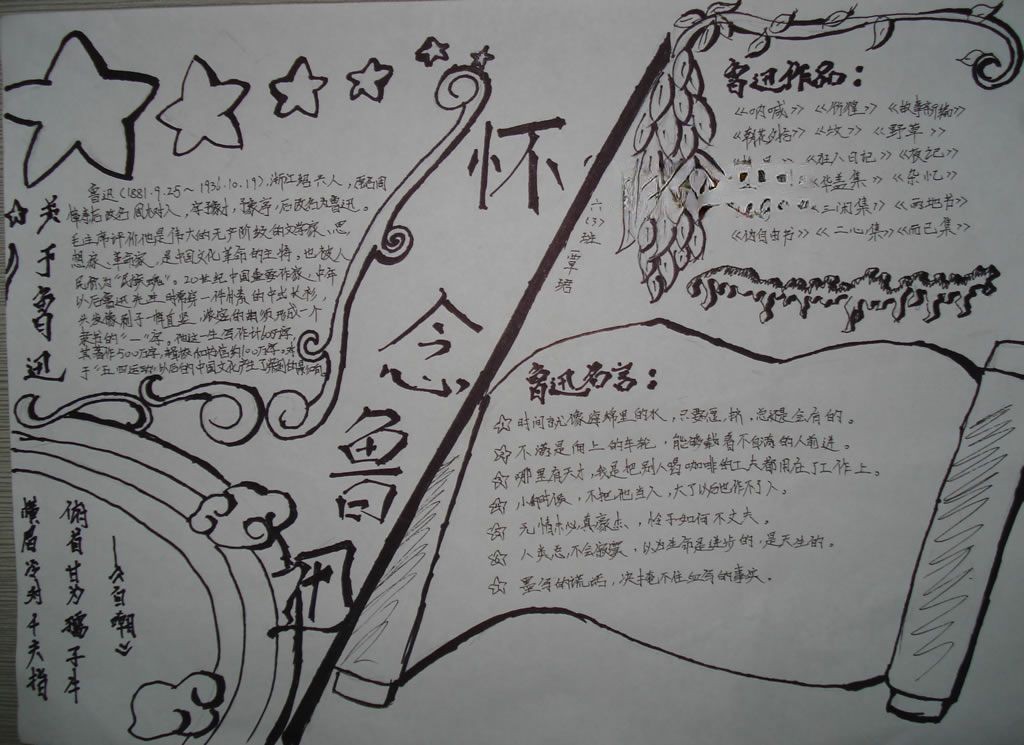 怀念鲁迅
六(3)班 覃珺
关于鲁迅
鲁迅(1881.9.25~1936.10.19),浙江绍兴人,原名周
樟寿后改名周树人,字豫才,豫亭,后改名为鲁迅。
毛主席评价他是伟大的无产阶级的文学家、思
想家、革命家,是中国文化革命的主将。也被人
民称为“民族魂”。20世纪中国重要作家,中年
以后鲁迅先生时常穿一件朴素的中式长衫,
头发像刷子一样直竖,浓密的胡须形成一个
隶书的“一”字。他这一生写作计600万字,
其著作500万字,辑校和书信约100万字。对
于“五四运动”以后的中国文化产生了深刻的影响
横眉冷对千夫指
俯首甘为孺子牛
——《自嘲》
鲁迅作品:
《呐喊》《彷徨》《故事新编》
《朝花夕拾》《坟》《野草》
《狂人日记》《夜记》
《华盖集》《杂忆》
《三闲集》《两地书》
《伪自由书》《二心集》《而已集》
鲁迅名言:
☆ 时间就像海绵里的水,只要愿挤,总还是会有的。
☆ 不满是向上的车轮,能够载着不自满的人前进。
☆ 哪里有天才,我是把别人喝咖啡的工夫都用在了工作上。
☆ 小的时候,不把他当人,大了以后也作不了人。
☆ 无情未必真豪杰,怜子如何不丈夫。
☆ 人类总不会寂寞,以为生命是进步的,是天生的。
☆ 墨写的谎话,决掩不住血写的事实。